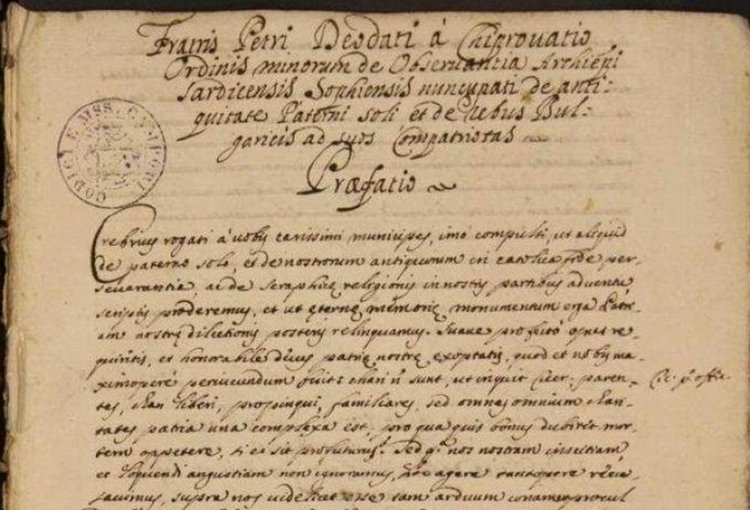 Fratris Petri Deodati à Chiprovatio
Ordinis minorum de Observantia Archiepi
Sardicensis Sophiensis nuncupati de anti-
quitate Paterni soli et de rebus Bul-
garicis ad suos Compatriotas
Præfatio
CODICI E MSS. CAMPORI
Crebrius rogati à vobis carissimi municipes, imò compulsi, ut aliquid
de paterno solo, et de nostrorum antiquorum in catholica fide per-
severantia, ac de Seraphicę religionis in nostris partibus adventu,
scriptis proderemus, et ut ęternę memorię monumentum erga Patri-
am nostrę dilectionis posteris relinquamus. Suave profectò opus re-
quiritis, et honorabile decus patrię nostrę exoptatis, quod et nobis ma-
ximoperè percutiendum fuit: chari n. sunt, ut inquit Cicer: paren-
Cic: p.o offic.
tes, chari liberi, propinqui, familiares, sed omnes omnium chari-
tates patria una complexa est, pro qua quis bonus dubitet mor-
tem oppetere, si ei sit profuturus? Sed q. nos nostram inscitiam,
et loquendi angustiam non ignoramus, hoc agere tantopere recu-
savimus, supra nos videlicet esse tam arduum conamen procul